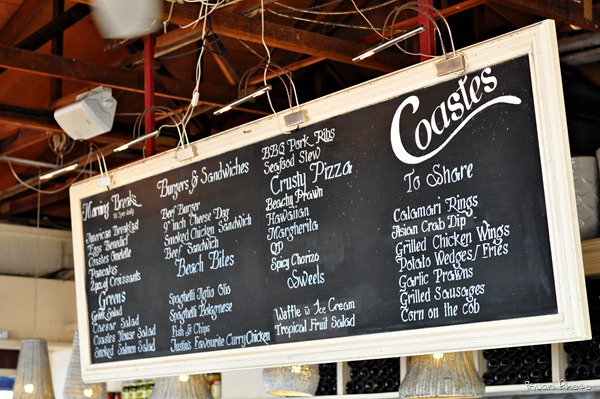 Morning Breaks
American Breakfast
Eggs Benedict
Coastes Omelette
Pancakes
2pcs of Croissants
Greens
Caesar Salad
Coastes House Salad
Smoked Salmon Salad
Burgers & Sandwiches
Beef Burger
9" inch Cheese Dog
Smoked Chicken Sandwich
Beef Sandwich
Beach Bites
Spaghetti Aglio Olio
Spaghetti Bolognese
Fish & Chips
Justin's Favourite Curry Chicken
BBQ Pork Ribs
Seafood Stew
Crusty Pizza
Beachy Prawn
Hawaiian
Margherita
QD
Spicy Chorizo
Sweets
Waffle & Ice Cream
Tropical Fruit Salad
Coastes
To Share
Calamari Rings
Asian Crab Dip
Grilled Chicken Wings
Potato Wedges/Fries
Garlic Prawns
Grilled Sausages
Corn on the Cob